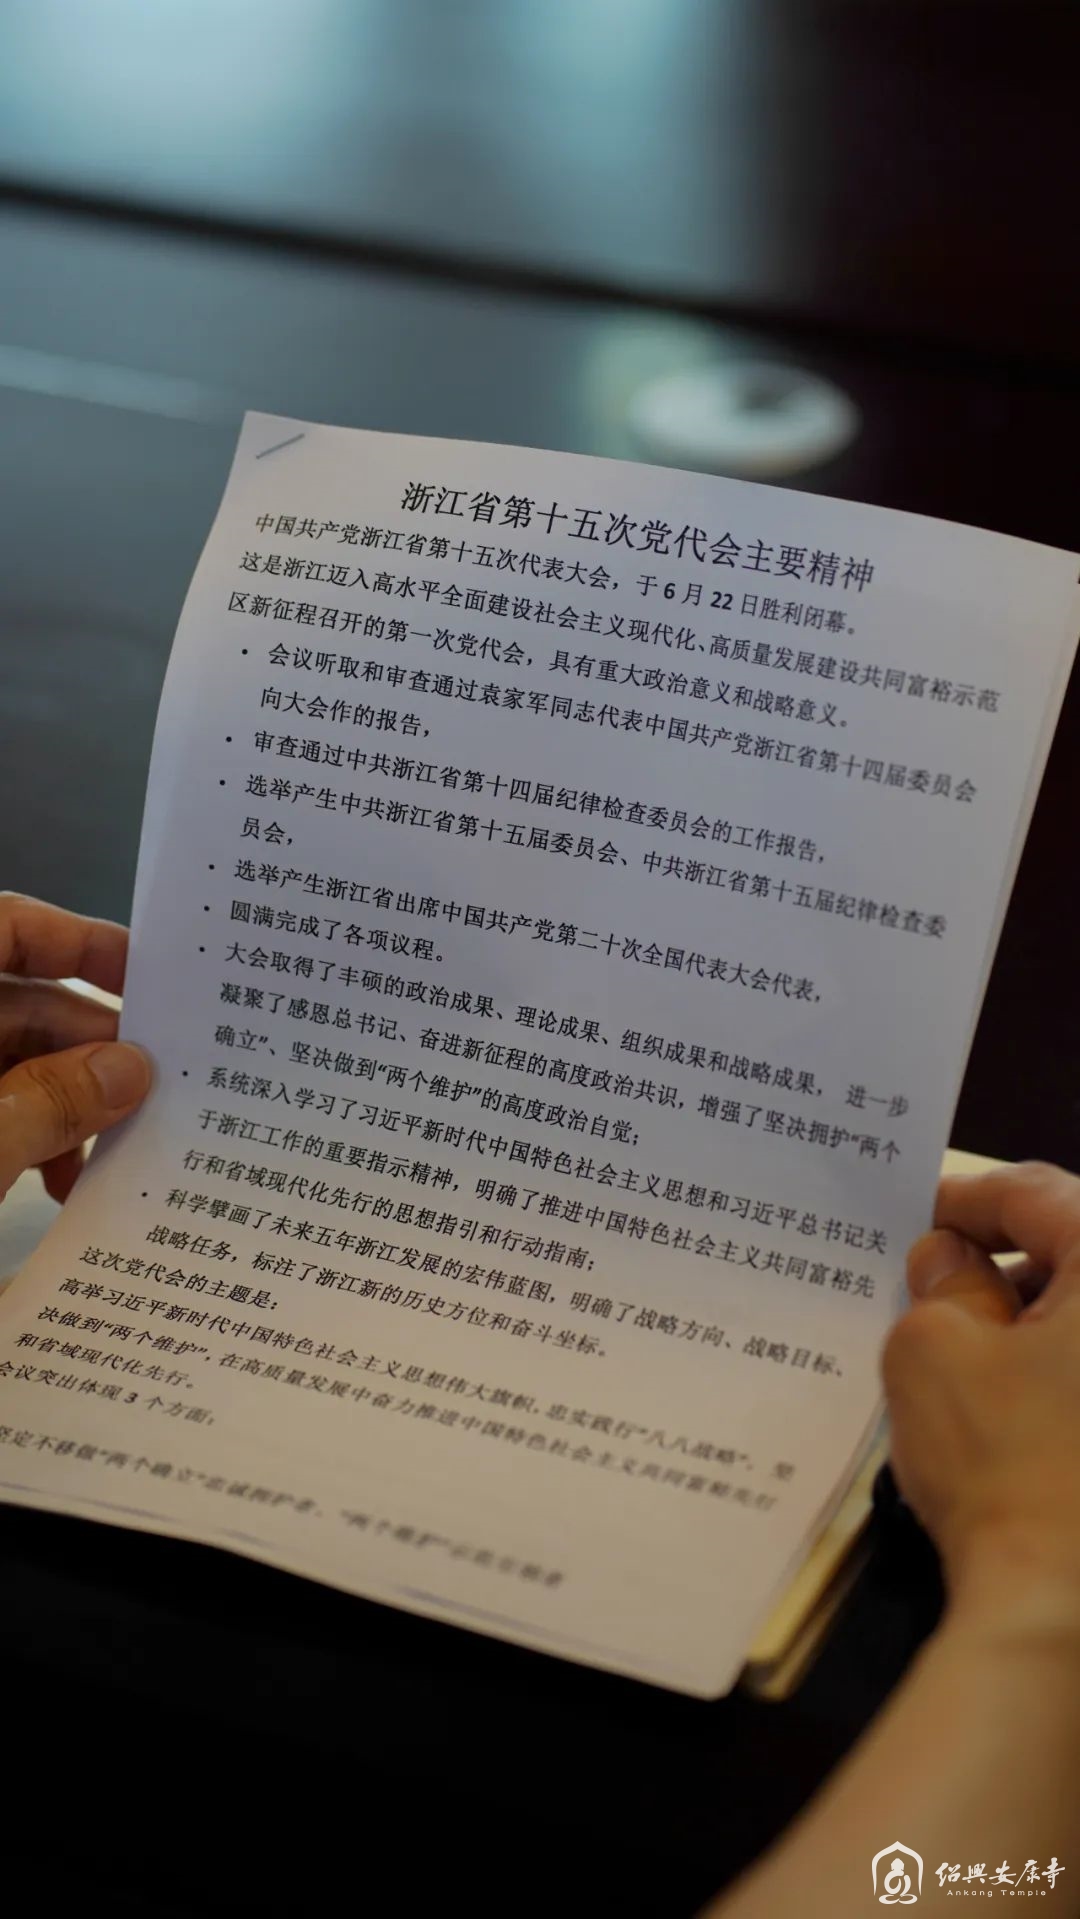 浙江省第十五次党代会主要精神
中国共产党浙江省第十五次代表大会，于 6 月 22 日胜利闭幕。
这是浙江迈入高水平全面建设社会主义现代化、高质量发展建设共同富裕示范
区新征程召开的第一次党代会，具有重大政治意义和战略意义。
• 会议听取和审查通过袁家军同志代表中国共产党浙江省第十四届委员会
向大会作的报告，
• 审查通过中共浙江省第十四届纪律检查委员会的工作报告，
• 选举产生中共浙江省第十五届委员会、中共浙江省第十五届纪律检查委
员会，
• 选举产生浙江省出席中国共产党第二十次全国代表大会代表，
• 圆满完成了各项议程。
• 大会取得了丰硕的政治成果、理论成果、组织成果和战略成果， 进一步
凝聚了感恩总书记、奋进新征程的高度政治共识，增强了坚决拥护“两个
确立”、坚决做到“两个维护”的高度政治自觉；
• 系统深入学习了习近平新时代中国特色社会主义思想和习近平总书记关
于浙江工作的重要指示精神，明确了推进中国特色社会主义共同富裕先
行和省域现代化先行的思想指引和行动指南；
• 科学擘画了未来五年浙江发展的宏伟蓝图，明确了战略方向、战略目标、
战略任务，标注了浙江新的历史方位和奋斗坐标。
这次党代会的主题是：
高举习近平新时代中国特色社会主义思想伟大旗帜，忠实践行“八八战略”，坚
决做到“两个维护”，在高质量发展中奋力推进中国特色社会主义共同富裕先行
和省域现代化先行。
会议突出体现 3 个方面：
坚定不移做“两个确立”忠诚拥护者、“两个维护”示范引领者
绍興安康寺
Ankang Temple